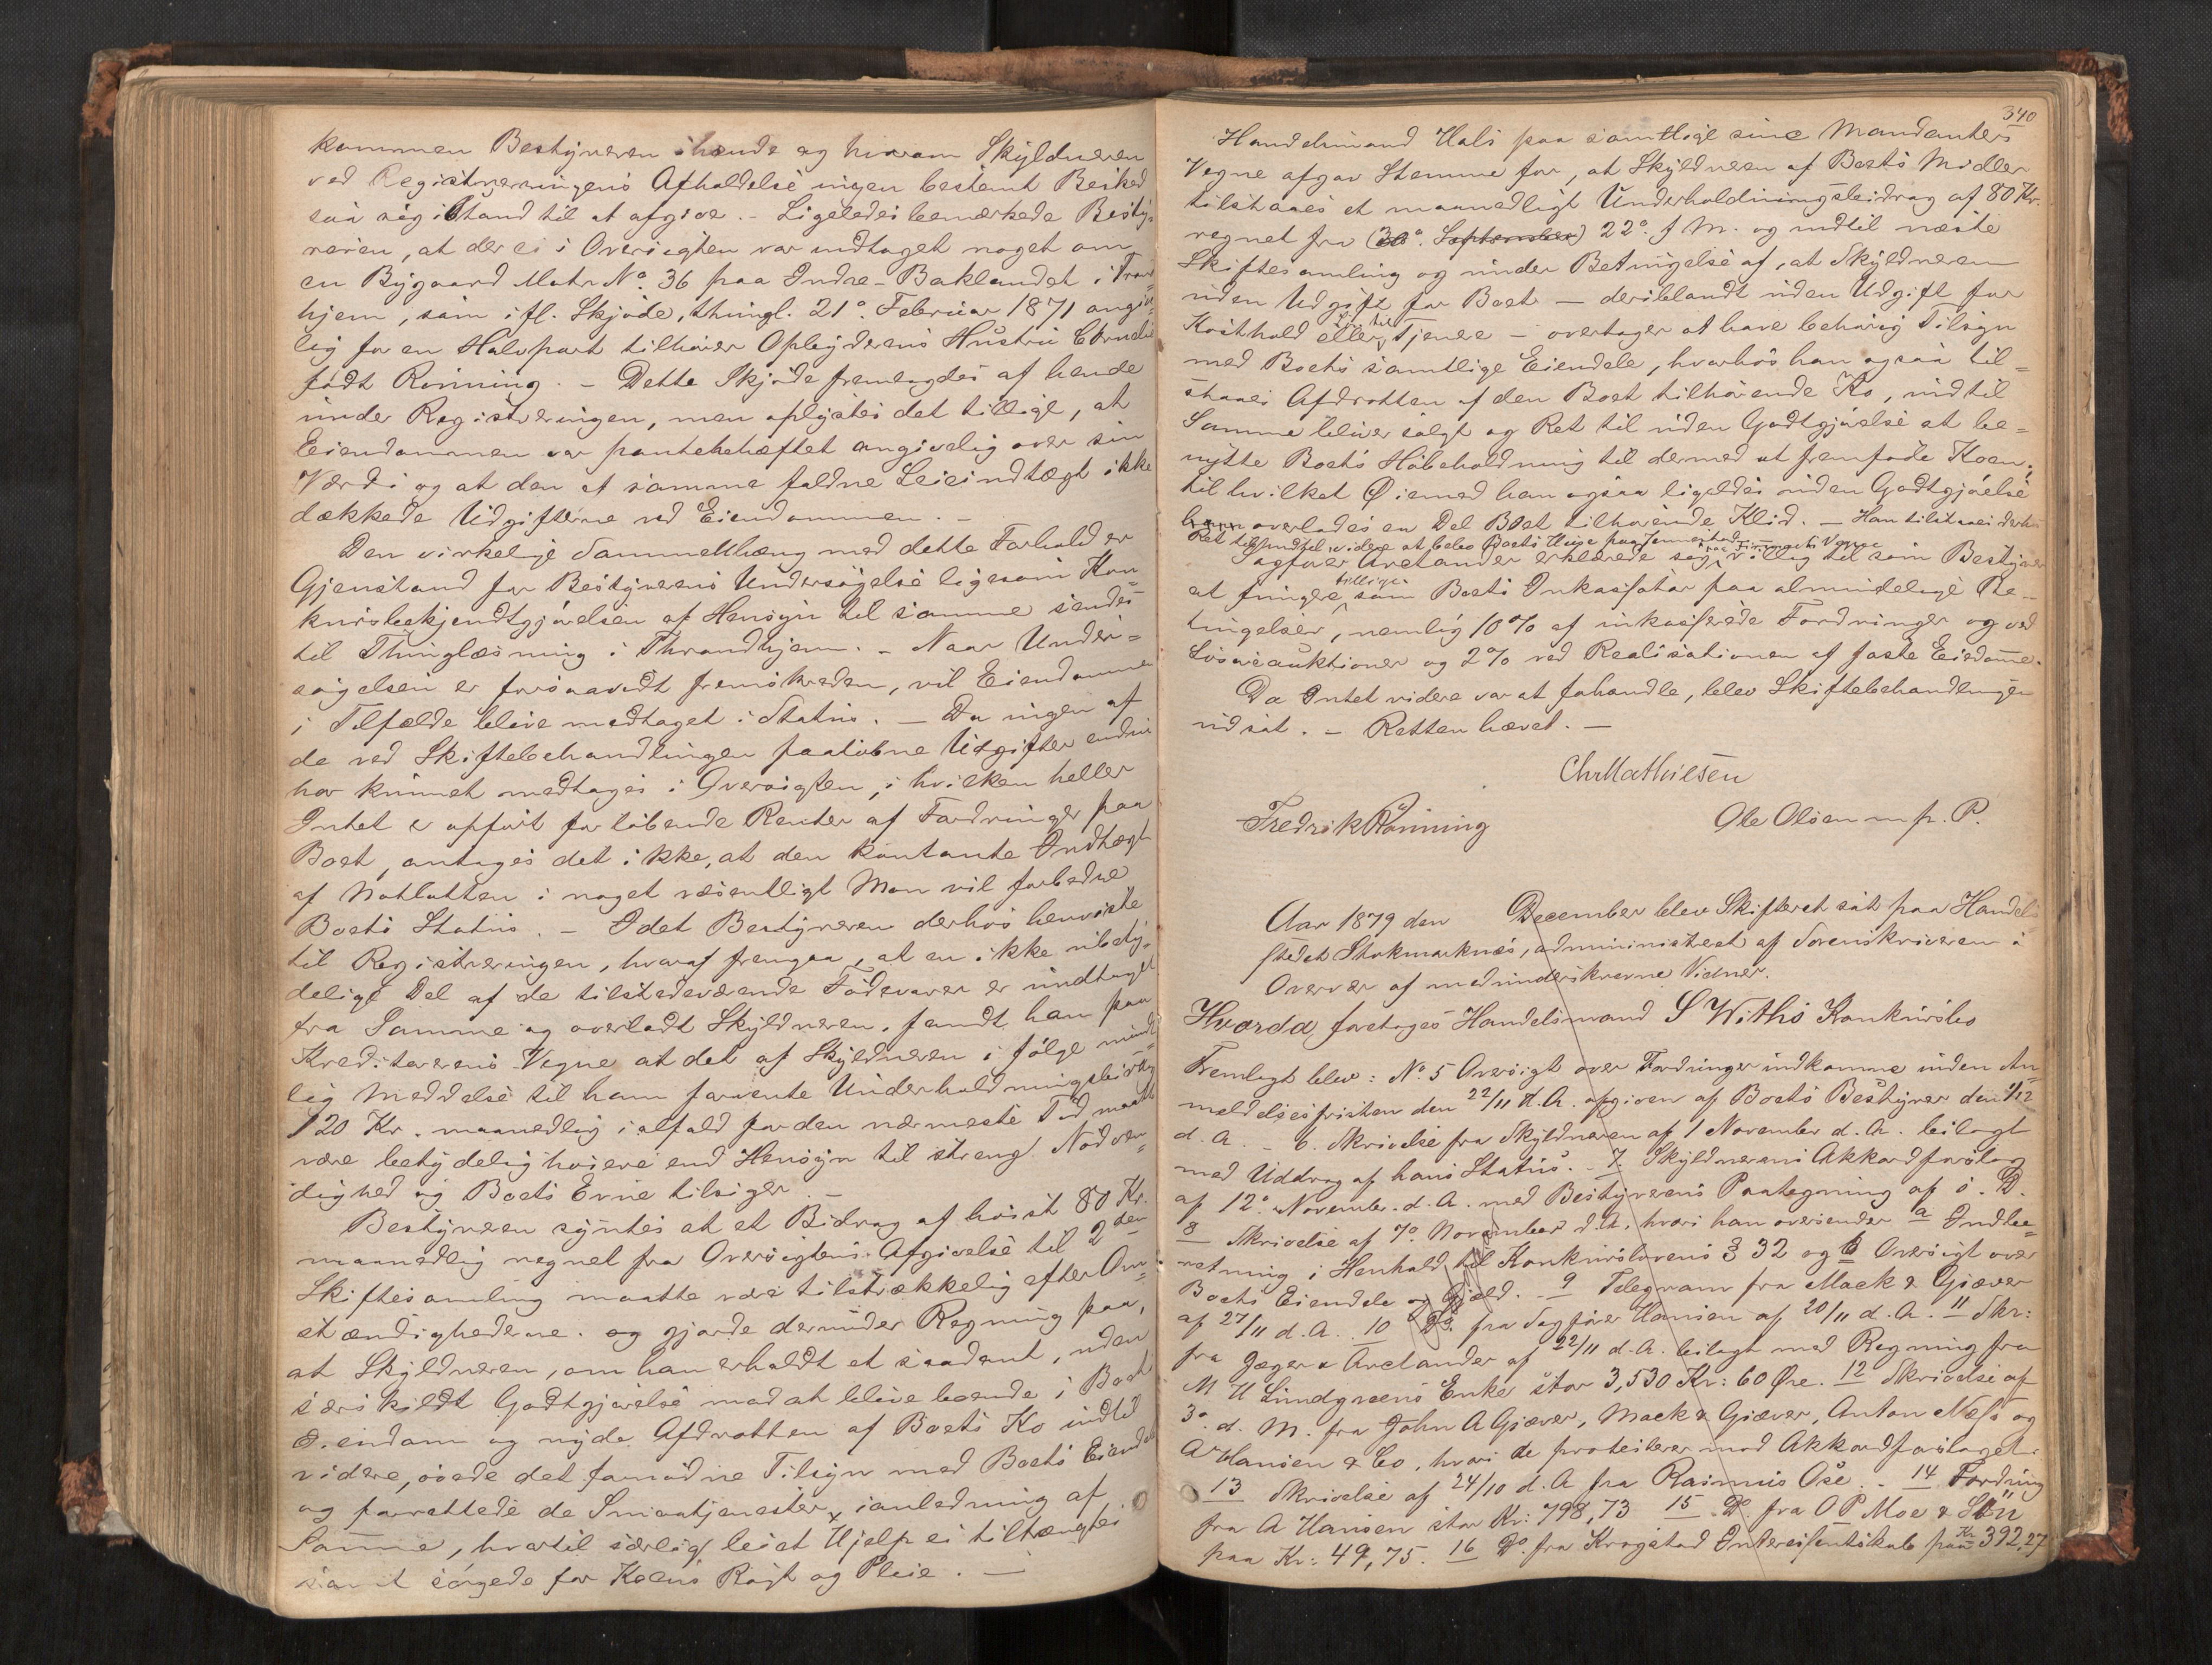 kommen Bestyreren ihænde og hvorom Skyldneren
ved Registreringens Afholdelse ingen bestemt Besked
saa sig istand til at afgive. - Ligeledes bemærkede Besty-
reren, at der ei i Oversigten var indtaget noget om
en Bygaard Matr No. 36 paa Indre-Baklandet i Trond-
hjem, som ifl. Skjøde, thingl. 21o. Februar 1871 angive-
lig for en Halvpart tilhører Opbyderens Hustru Cornelia
født Rønning. - Dette Skjøde fremlagdes af hende
under Registreringen, men oplystes det tillige, at
Eiendommen var pantebehæftet angivelig over sin
Værdi og at den af samme faldne Leieindtægt ikke
dækkede Udgifterne ved Eiendommen. -
Den virkelige Sammenhæng med dette Forhold er
Gjenstand for Bestyrerens Undersøgelse ligesom Kon-
kursbekjendtgjørelsen af Hensyn til samme sendes
til Thinglæsning i Throndhjem. - Naar Under-
søgelsen er forsaavidt fremskreden, vil Eiendommen
i Tilfælde blive medtaget i Status. - Da ingen af
de ved Skiftebehandlingen paaløbne Udgifter endnu
har kunnet medtages i Oversigten, i hvilken heller
Intet er opført for løbende Renter af Fordringer paa
Boet, antages det ikke, at den kontante Indtægt
af Notlotten i noget væsentligt Mon vil forbedre
Boets Status. - Idet Bestyreren derhos henviste
til Registreringen, hvoraf fremgaar, at en ikke ubety-
delige Del af de tilstedeværende Fødevarer er undtaget
fra Samme og overladt Skyldneren, fandt han paa
Kreditorerens Vegne at det af Skyldneren i følge mundt-
lig Meddelse til ham forventede Underholdningsbidrag
120 Kr. maanedlig ialfald for den nærmeste Tid maatte
være betydelig høiere end Hensyn til streng Nødven-
dighed og Boets Evne tilsiger. -
Bestyreren syntes at et Bidrag af høist 80 Kr.
maanedlig regnet fra Oversigtens Afgivelse til 2den
Skiftesamling maatte være tilstrækkelig efter Om-
stændighederne. og gjorde derunder Regning paa,
at Skyldneren, om han erholdt et saadant, uden
særskildt Godtgjørelse mod at blive boende i Boets
Eiendom og nyde Afdrotten af Boets Ko indtil
videre, øvede det fornødne Tilsyn med Boets Eiendele
og forrettede de Smaatjenester, ianledning af
Samme, hvortil særlig leiet Hjelp ei tiltrængtes
samt sørgede for Koens Røgt og Pleie. -
340
Handelsmand Hals paa samtlige sine Mandanters
Vegne afgav Stemme for, at Skyldneren af Boets Midler
tilstaaes et maanedligt Underholdningsbidrag af 80 Kr.
regnet fra (30o. September) 22o. f M. og indtil næste
Skiftesamling og under Betingelse af, at Skyldneren
uden Udgift for Boet - deriblandt uden Udgift for
Kosthold eller Løn til Tjener - overtager at have behørig Tilsyn
med Boets samtlige Eiendele, hvorhos han ogsaa til-
staaes Afdrotten af den Boet tilhørende Ko, indtil
Samme bliver solgt og Ret til uden Godtgjørelse at be-
nytte Boets Høbeholdning til dermed at fremføde Koen;
til hvilket Øiemed han ogsaa ligeledes uden Godtgjørelse
ham overlades en Del Boet tilhørende Klid. - Han tilstaaes derhos
Ret til indtil videre at bebo Boets Huse paa
Sagfører Arctander erklærede sig villig til som Bestyrer
at fungere tillige som Boets Inkassator paa almindelige Be-
tingelser, nemlig 10% af inkasserede Fordringer og ved
Løsøreauktioner og 2% ved Realisationen af faste Eiendomme.
Da Intet videre var at forhandle, blev Skiftebehandlingen
udsat. - Retten hævet. -
Chr Mathiesen
Fredrik Rönning
Ole Olsen m. p. P.
Aar 1879 den December blev Skifteret sat paa Handels-
stedet Stokmarknæs, administreret af Sorenskriveren i
Overvær af medunderskrevne Vidner.
Hvorda foretoges Handelsmand S Withs Konkursbo
Fremlagt blev: No. 5 Oversigt over Fordringer indkomne inden An-
meldelsesfristen den 22/11 d. A. afgiven af Boets Bestyrer den 1/12
d. A - 6. Skrivelse fra Skyldneren af 1 November d. A. bilagt
med Uddrag af hans Status. - 7. Skyldnerens Akkordforslag
af 12o. November d. A. med Bestyrerens Paategning af s. D.
8 Skrivelse af 7o. November d. A. hvori han oversender a Indbe-
retning i Henhold til Konkurslovens § 32 og b Oversigt over
Boets Eiendele og Gjæld. - 9 Telegram fra Mack & Gjæver
af 27/11 d. A. 10 Do. fra Sagfører Hansen af 20/11 d. A. 11 Skr:
fra Jæger & Arctander af 22/11 d. A. bilagt med Regning fra
M U Lundgreens Enke stor 3,530 Kr: 60 Øre. 12 Skrivelse af
3o. d. M. fra John A Gjæver, Mack & Gjæver, Anton Næss og
A Hansen & Co, hvori de protesterer mod Akkordforslaget.
13 Skrivelse af 24/10 d. A fra Rasmus Ose. - 14 Fordring
fra A Hansen stor Kr: 798,73 15 Do. fra O P Moe & Søn
paa Kr: 49,75. 16 Do. fra Krogstad Interessentskab paa Kr 392,27